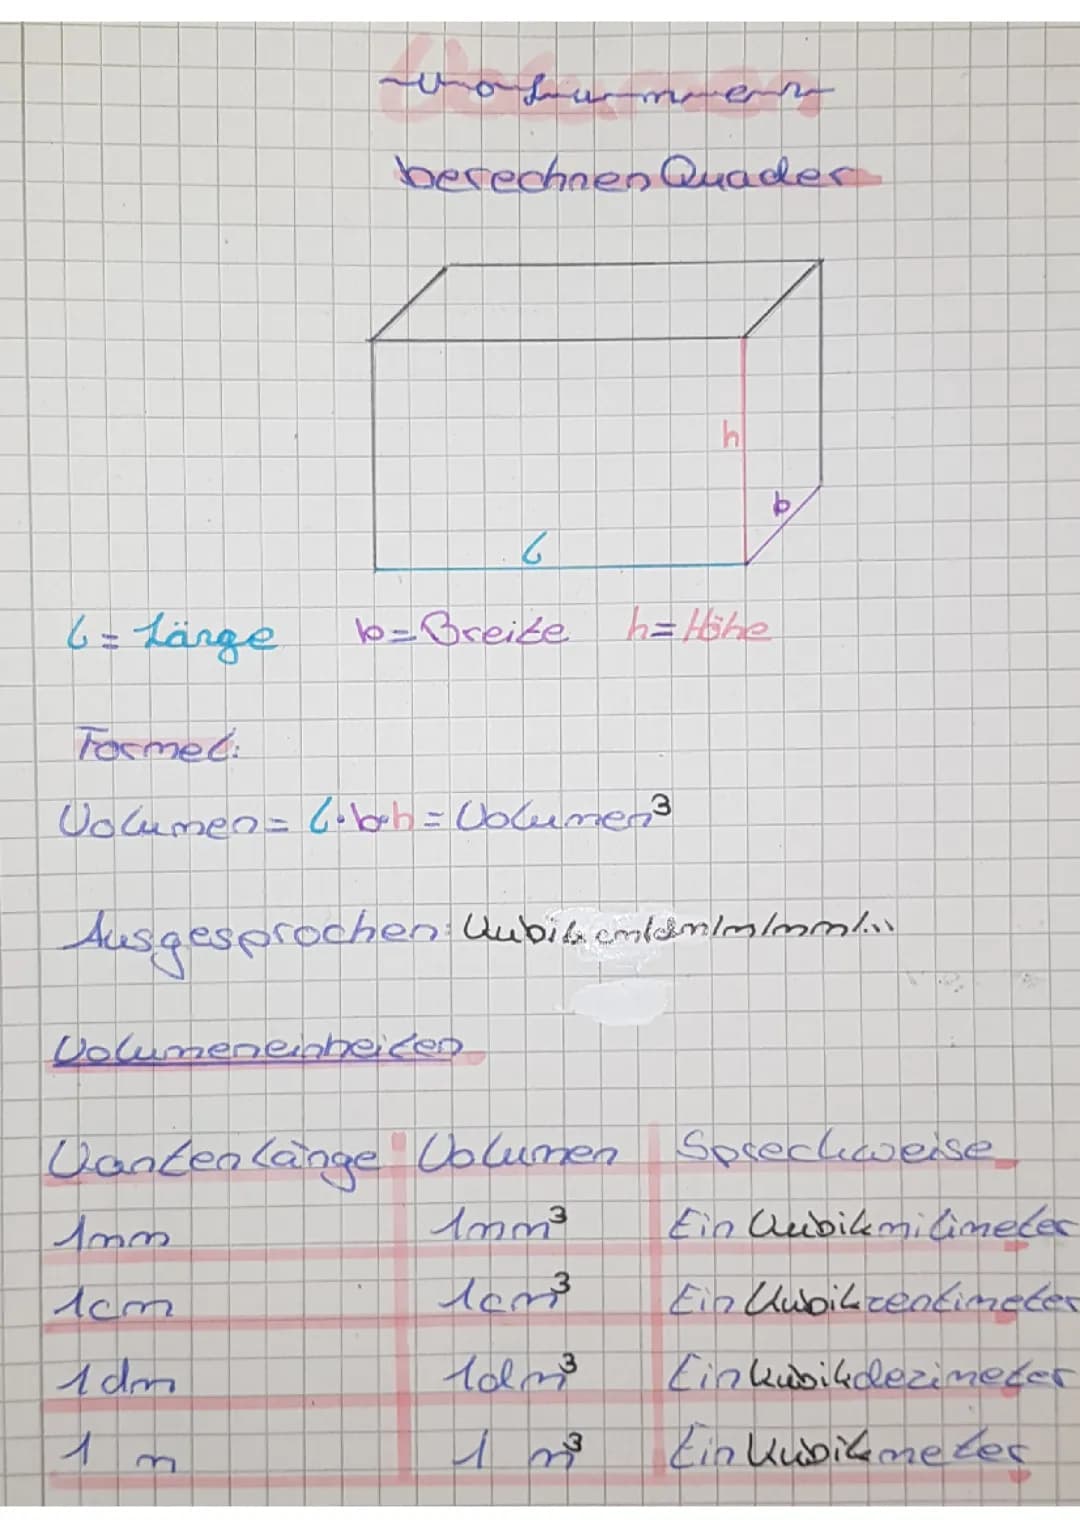 Volumen
berechnen Quader
h
b
l
l = Länge b = Breite h = Höhe
Formel:
Volumen = l·b·h = Volumen³
Ausgesprochen: Kubik cm/dm/m/mm/...
Volumeneinheiten
Kantenlänge Volumen Sprechweise
1mm 1mm³ Ein Kubikmilimeter
1cm 1cm³ Ein Kubikzentimeter
1dm 1dm³ Ein Kubikdezimeter
1 m 1 m³ Ein Kubikmeter